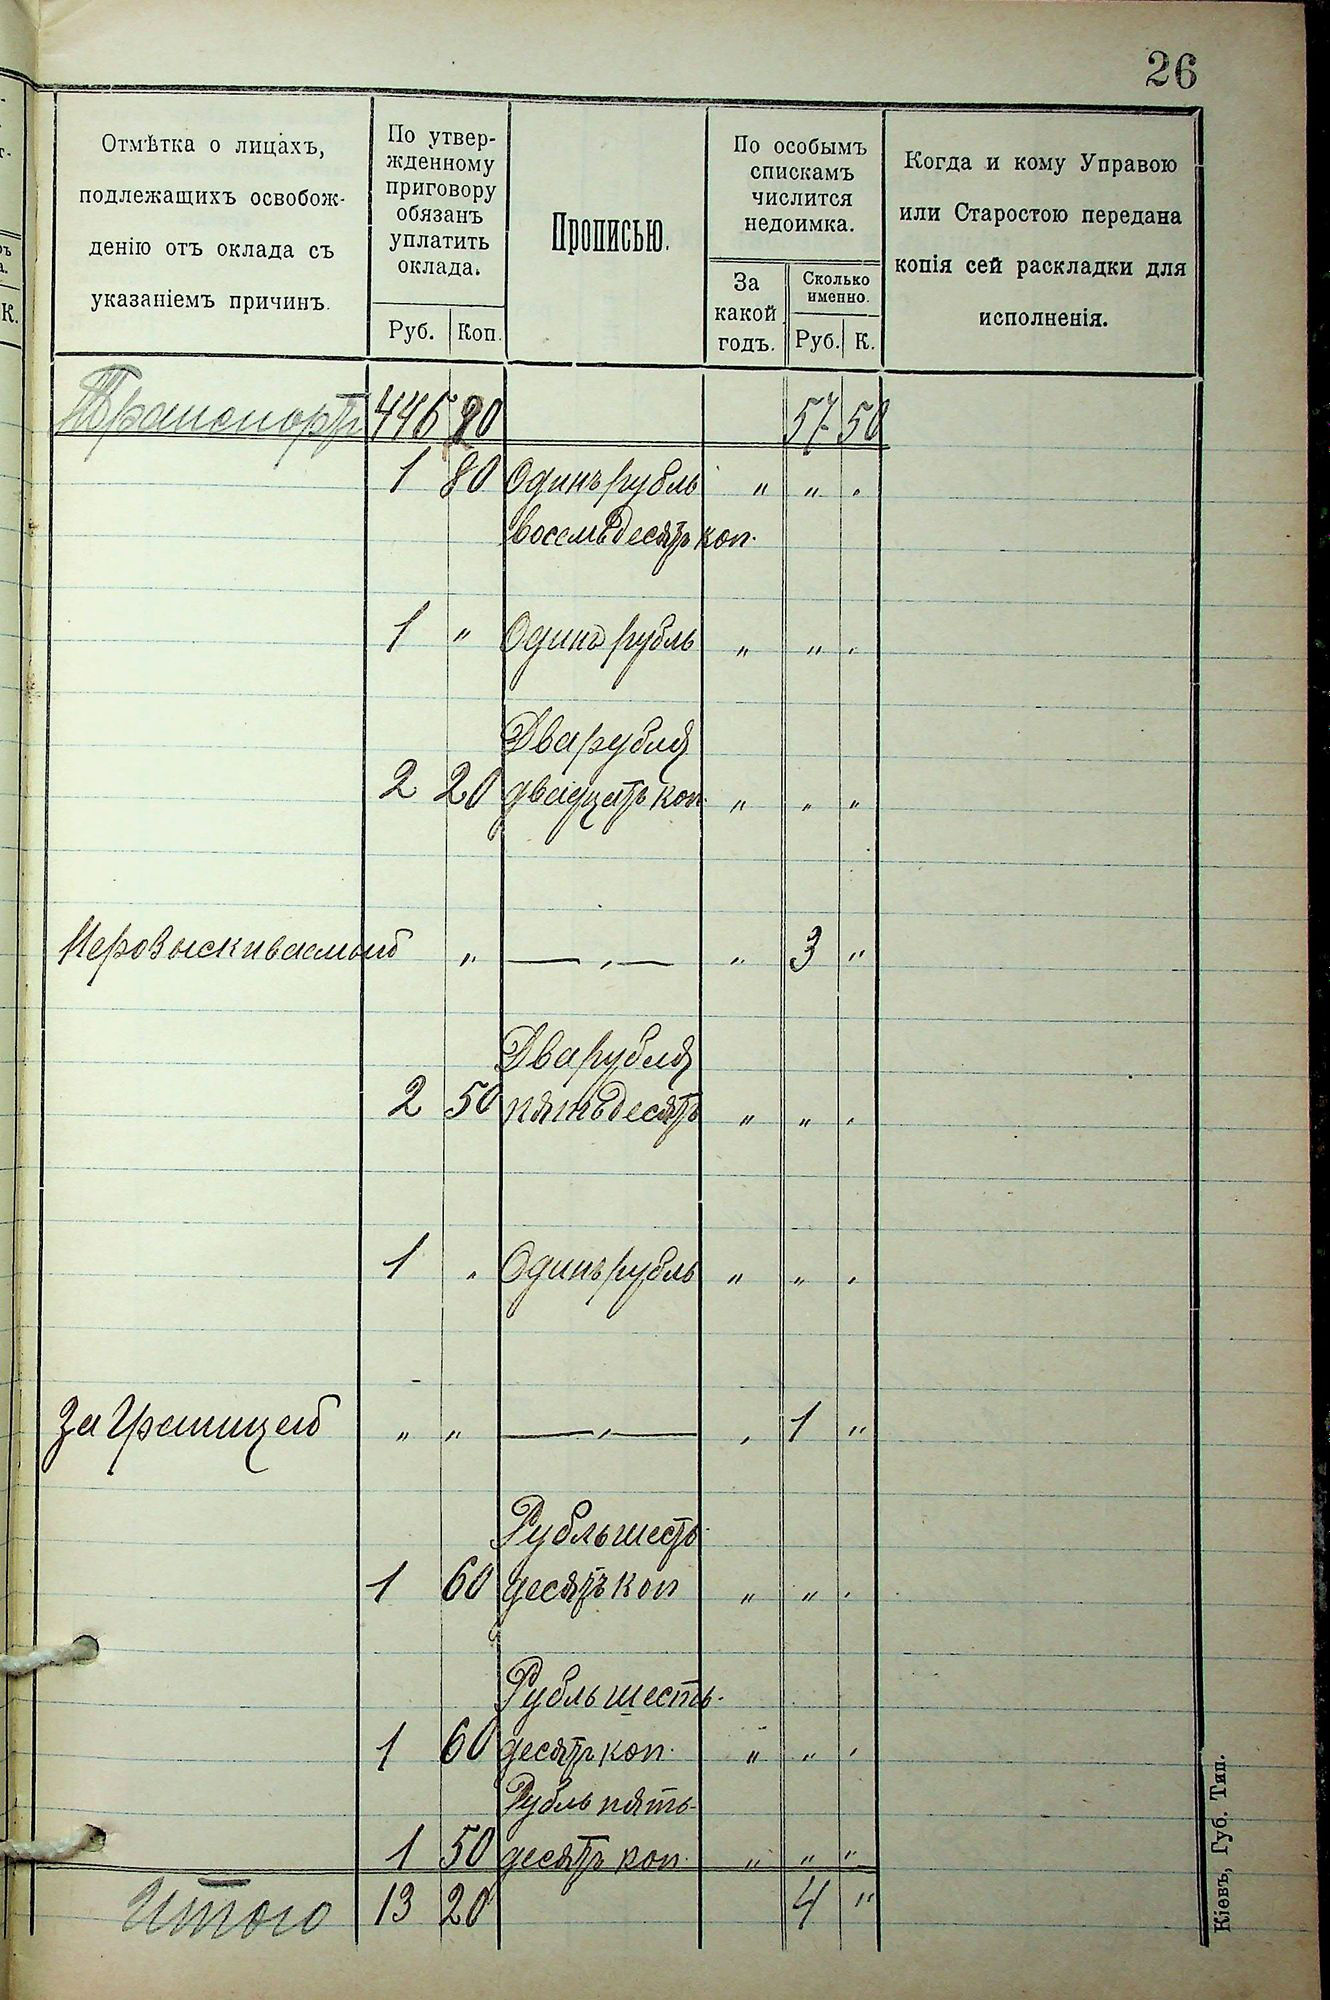 26
Отмѣтка о лицахъ,
подлежащихъ освобож-
денію отъ оклада съ
указаніемъ причинъ.
По утвер-
жденному
приговору
обязанъ
уплатить
оклада.
Руб. Коп.
Прописью.
По особымъ
спискамъ
числится
недоимка.
За
какой
годъ.
Сколько
именно.
Руб. К.
Когда и кому Управою
или Старостою передана
копія сей раскладки для
исполненія.
Транспортъ 57 50
1 80 Одинъ рубль " " "
восемьдесятъ коп.
1 " Одинъ рубль " " "
Два рубля
2 20 двадцать коп. " " "
" — " — " 3 "
Два рубля
2 50 пятьдесятъ " " "
1 " Одинъ рубль " " "
За границей " " — " — " 1 "
Рубль шесть-
1 60 десятъ коп " " "
Рубль шесть-
1 60 десятъ коп. " " "
Рубль пять-
1 50 десятъ коп. " " "
Итого 13 20 4 "
Кіевъ, Губ. Тип.